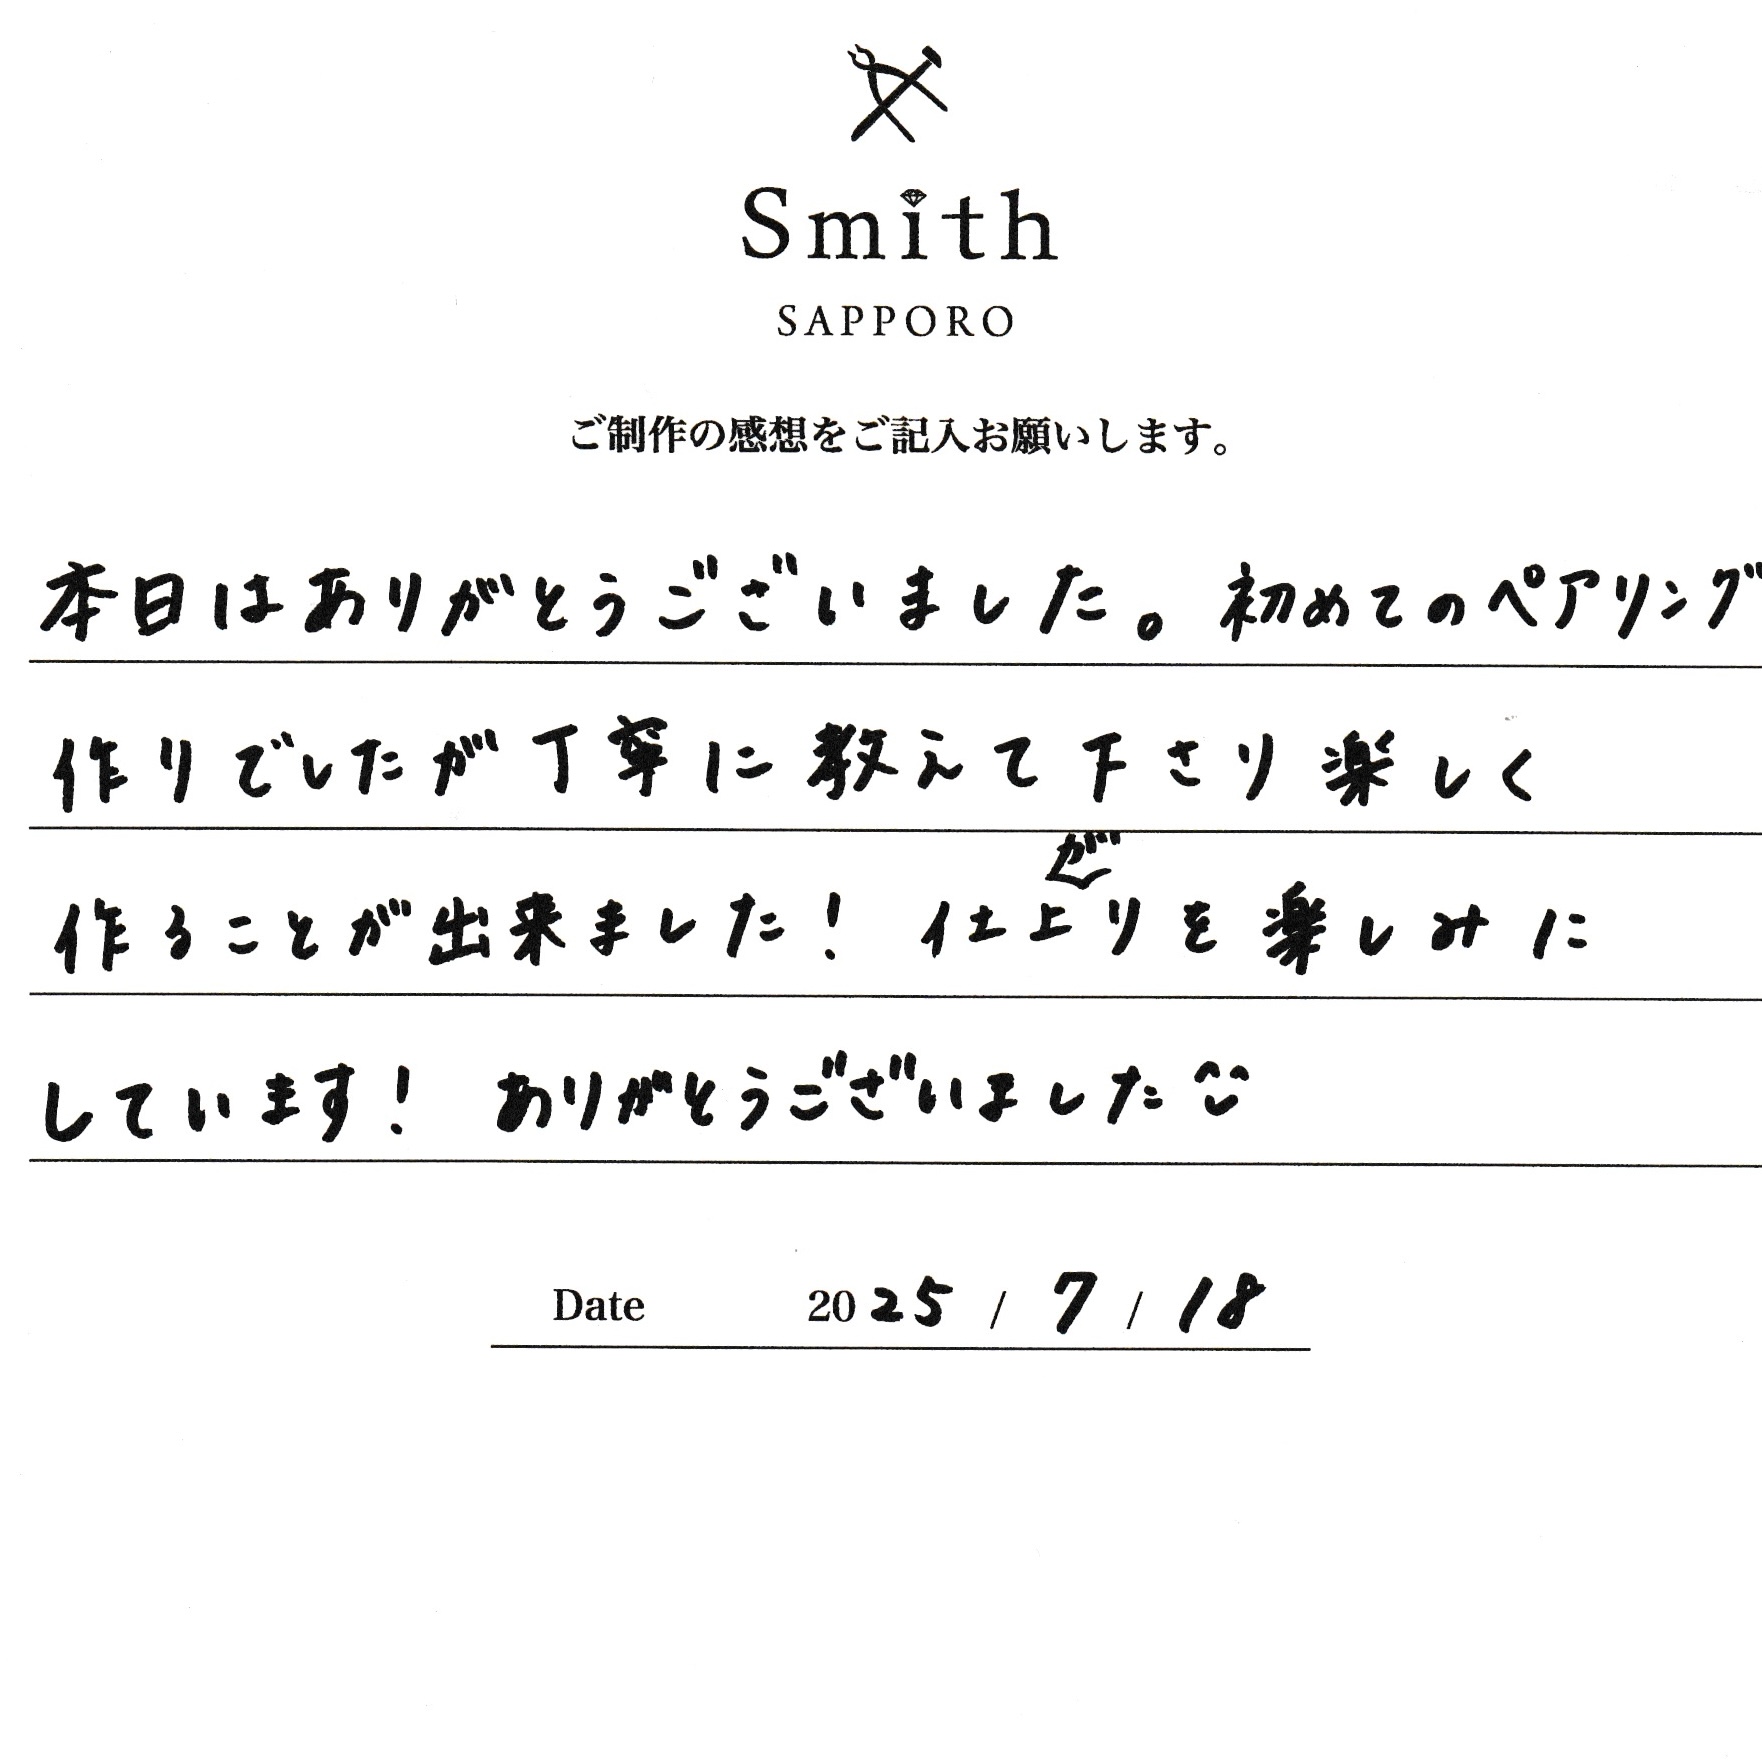 Smith
SAPPORO
ご制作の感想をご記入お願いします。
本日はありがとうございました。初めてのペアリング
作りでしたが丁寧に教えて下さり楽しく
作ることが出来ました！ 仕上がりを楽しみに
しています！ ありがとうございました
Date 2025 / 7 / 18